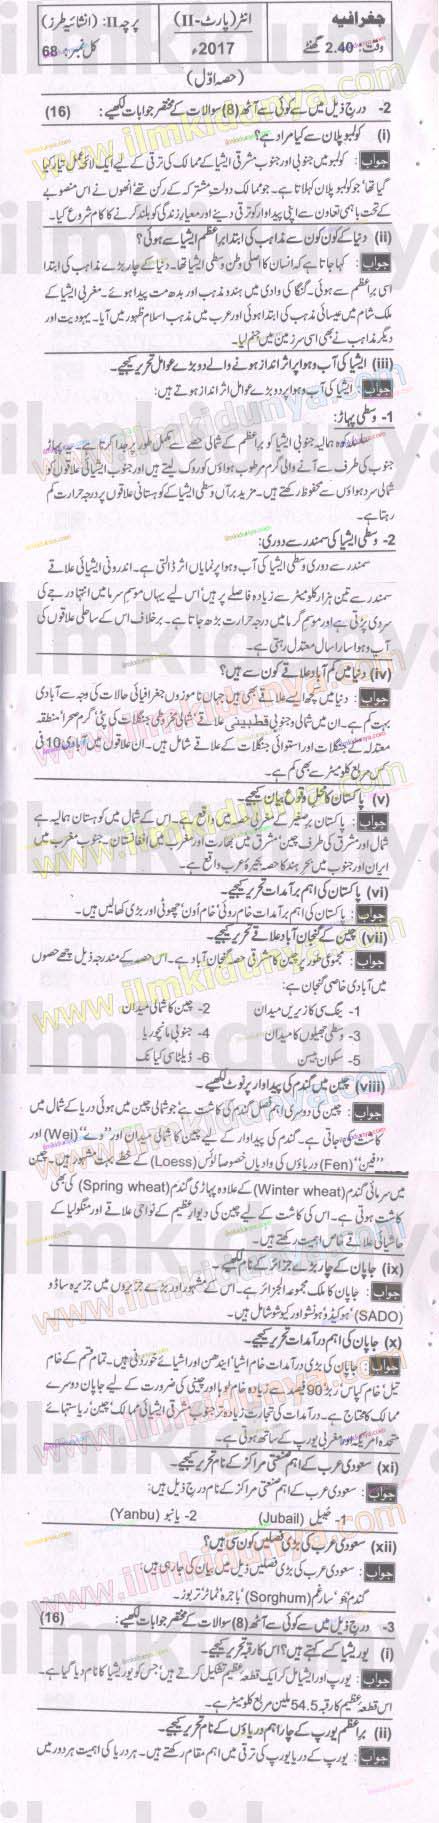 جغرافیہ
انٹر (پارٹ-II)
پرچہ II: (انشائیہ طرز)
وقت: 2.40 گھنٹے
2017ء
کل نمبر: 68
(حصہ اوّل)
2- درج ذیل میں سے کوئی سے آٹھ (8) سوالات کے مختصر جوابات لکھیے: (16)
(i) کولمبو پلان سے کیا مراد ہے؟
جواب: کولمبو میں جنوبی اور جنوب مشرقی ایشیا کے ممالک کی ترقی کے لیے ایک لائحہ عمل تیار کیا
گیا تھا، جو کولمبو پلان کہلاتا ہے۔ جو ممالک دولتِ مشترکہ کے رکن تھے انھوں نے اس منصوبے
کے تحت باہمی تعاون سے اپنی پیداوار کو ترقی دینے اور معیارِ زندگی کو بلند کرنے کا کام شروع کیا۔
(ii) دنیا کے کون کون سے مذاہب کی ابتدا براعظم ایشیا سے ہوئی؟
جواب: کہا جاتا ہے کہ انسان کا اصلی وطن وسطی ایشیا تھا۔ دنیا کے چار بڑے مذاہب کی ابتدا
اسی براعظم سے ہوئی۔ گنگا کی وادی میں ہندو مذہب اور بدھ مت پیدا ہوئے۔ مغربی ایشیا کے
ملک شام میں عیسائی مذہب کی ابتدا ہوئی اور عرب میں مذہب اسلام ظہور میں آیا۔ یہودیت اور
دیگر مذاہب نے بھی اسی سرزمین میں جنم لیا۔
(iii) ایشیا کی آب و ہوا پر اثر انداز ہونے والے دو بڑے عوامل تحریر کیجیے۔
جواب: ایشیا کی آب و ہوا پر دو بڑے عوامل اثر انداز ہوتے ہیں:
1- وسطی پہاڑ:
کوہ ہمالیہ جنوبی ایشیا کو براعظم کے شمالی حصے سے مکمل طور پر جدا کرتا ہے۔ یہ پہاڑ
جنوب کی طرف سے آنے والی گرم مرطوب ہواؤں کو روک لیتے ہیں اور جنوب ایشیائی علاقوں کو
شمالی سرد ہواؤں سے محفوظ رکھتے ہیں۔ مزید برآں وسطی ایشیا کے کوہستانی علاقوں پر درجہ حرارت کم
رہتا ہے۔
2- وسطی ایشیا کی سمندر سے دوری:
سمندر سے دوری وسطی ایشیا کی آب و ہوا پر نمایاں اثر ڈالتی ہے۔ اندرونی ایشیائی علاقے
سمندر سے تین ہزار کلومیٹر سے زیادہ فاصلے پر ہیں اس لیے یہاں موسم سرما میں انتہا درجے کی
سردی پڑتی ہے اور موسم گرما میں درجہ حرارت بڑھ جاتا ہے۔ برخلاف اس کے ساحلی علاقوں کی
آب و ہوا سارا سال معتدل رہتی ہے۔
(iv) دنیا میں کم آباد علاقے کون سے ہیں؟
جواب: دنیا میں کچھ ایسے علاقے بھی ہیں جہاں ناموزوں جغرافیائی حالات کی وجہ سے آبادی
بہت کم ہے۔ ان میں شمالی و جنوبی قطبینی علاقے، شمالی مخروطی جنگلات کی پٹی، گرم صحرا، منطقہ
معتدلہ کے جنگلات اور استوائی جنگلات کے علاقے شامل ہیں۔ ان علاقوں میں آبادی 10 فی
کس مربع کلومیٹر سے بھی کم ہے۔
(v) پاکستان کا محل وقوع بیان کیجیے۔
جواب: پاکستان برصغیر کے مغربی حصہ میں واقع ہے۔ اس کے شمال میں کوہستان ہمالیہ ہے
شمال اور مشرق کی طرف چین، مشرق میں بھارت اور مغرب میں افغانستان۔ جنوب مغرب میں
ایران اور جنوب میں بحر ہند کا حصہ بحیرۂ عرب واقع ہے۔
(vi) پاکستان کی اہم برآمدات تحریر کیجیے۔
جواب: پاکستان کی اہم برآمدات خام روئی، خام اُون، چھوٹی اور بڑی کھالیں ہیں۔
(vii) چین کے گنجان آباد علاقے تحریر کیجیے۔
جواب: مجموعی طور پر چین کا مشرقی حصہ گنجان آباد ہے۔ اس حصہ کے مندرجہ ذیل چھے حصوں
میں آبادی خاصی گنجان ہے:
1- ینگ سی کا زیریں میدان 2- چین کا شمالی میدان
3- وسطی جھیلوں کا میدان 4- جنوبی مانچوریا
5- سکوان بیسن 6- ڈیلٹا سی کیانگ
(viii) چین میں گندم کی پیداوار پر نوٹ لکھیے۔
جواب: چین کی دوسری اہم فصل گندم کی کاشت ہے جو شمالی چین میں ہوئی دریا کے شمال میں
کاشت کی جاتی ہے۔ گندم کی پیداوار کے لیے چین کا شمالی میدان اور ”وے“ (Wei) اور
”فین“ (Fen) دریاؤں کی وادیاں خصوصاً لوئس (Loess) کے خطے بہت مشہور ہیں۔ چین
میں سرمائی گندم (Winter wheat) کے علاوہ بہاری گندم (Spring wheat) کی بھی
کاشت ہوتی ہے۔ اس کی کاشت کے لیے چین کی دیوارِ عظیم کے نواحی علاقے اور منگولیا کے
حاشیائی علاقے خاص اہمیت رکھتے ہیں۔
(ix) جاپان کے چار بڑے جزائر کے نام لکھیے۔
جواب: جاپان کا ملک مجموعہ الجزائر ہے۔ اس کے مشہور اور بڑے جزیروں میں جزیرہ ساڈو
(SADO)، ہوکیڈو، ہونشو اور کیوشو شامل ہیں۔
(x) جاپان کی اہم درآمدات تحریر کیجیے۔
جواب: جاپان کی بڑی درآمدات خام اشیا، ایندھن اور اشیائے خوردنی ہیں۔ تمام قسم کے خام
تیل، خام کپاس، ربڑ 90 فیصد سے زیادہ خام لوہا اور چینی کی ضرورت کے لیے جاپان دوسرے
ممالک کا محتاج ہے۔ درآمدات کی تجارت زیادہ تر جنوب مشرقی ایشیائی ممالک، چین، ریاستہائے
متحدہ امریکہ اور مغربی یورپ کے ساتھ ہوتی ہے۔
(xi) سعودی عرب کے اہم صنعتی مراکز کے نام تحریر کیجیے۔
جواب: سعودی عرب کے اہم صنعتی مراکز کے نام درج ذیل ہیں:
1- جُبیل (Jubail) 2- یانبو (Yanbu)
(xii) سعودی عرب کی بڑی فصلیں کون سی ہیں؟
جواب: سعودی عرب کی بڑی فصلیں ذیل میں بیان کی جا رہی ہیں:
گندم، جَو، سارغم (Sorghum)، باجرہ، ٹماٹر، تربوز۔
3- درج ذیل میں سے کوئی سے آٹھ (8) سوالات کے مختصر جوابات لکھیے: (16)
(i) یوریشیا کسے کہتے ہیں؟ اس کا رقبہ تحریر کیجیے۔
جواب: یورپ اور ایشیا مل کر ایک قطعہ عظیم تشکیل کرتے ہیں، جس کو یوریشیا کا نام دیا گیا ہے۔
اس قطعہ عظیم کا رقبہ 54.5 ملین مربع کلومیٹر ہے۔
(ii) براعظم یورپ کے چار اہم دریاؤں کے نام تحریر کیجیے۔
جواب: یورپ کے دریا یورپ کی ترقی میں اہم مقام رکھتے ہیں۔ ہر دریا کی اہمیت ہر دور میں